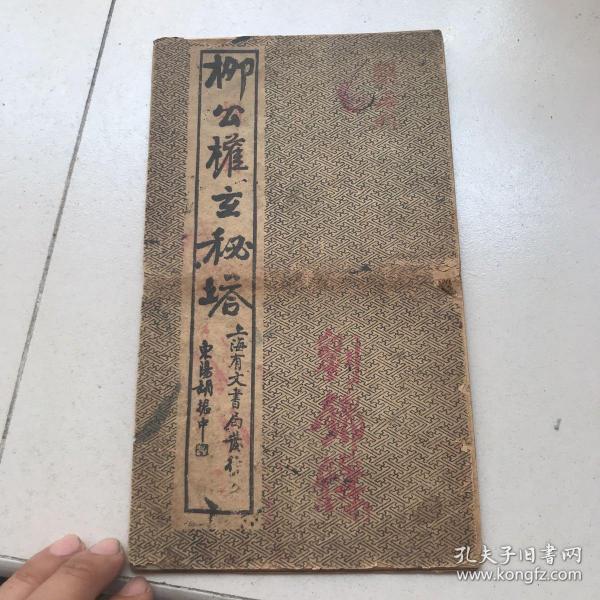 柳公權玄秘塔
上海有文書局發行
東陽胡
中
孔夫子旧書网
www.kongfz.com